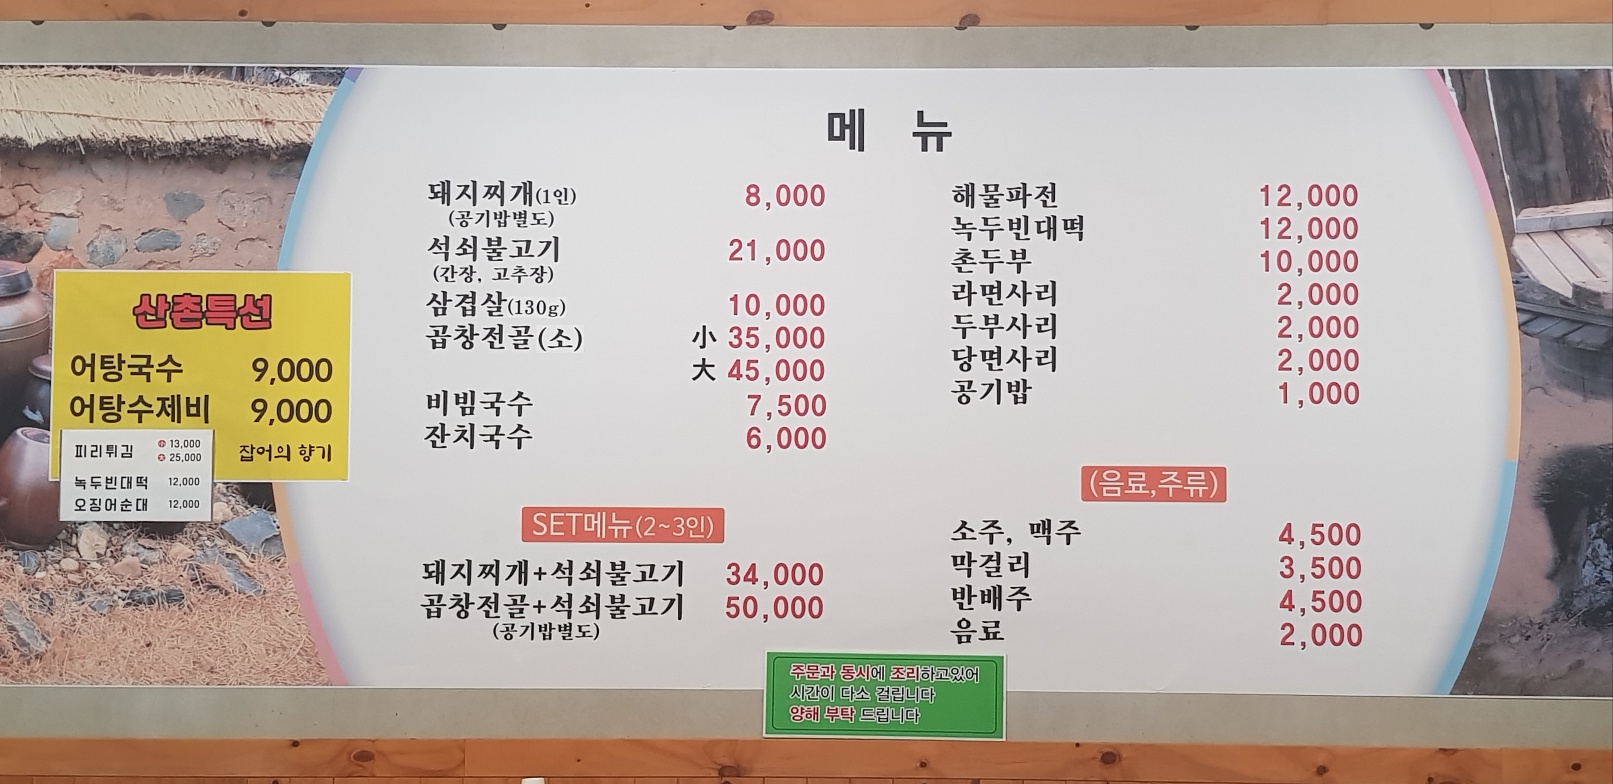 메 뉴
돼지찌개(1인) 8,000
(공기밥별도)
석쇠불고기 21,000
(간장, 고추장)
삼겹살(130g) 10,000
곱창전골(소) 小 35,000
大 45,000
비빔국수 7,500
잔치국수 6,000
SET메뉴(2~3인)
돼지찌개+석쇠불고기 34,000
곱창전골+석쇠불고기 50,000
(공기밥별도)
해물파전 12,000
녹두빈대떡 12,000
촌두부 10,000
라면사리 2,000
두부사리 2,000
당면사리 2,000
공기밥 1,000
(음료,주류)
소주, 맥주 4,500
막걸리 3,500
반배주 4,500
음료 2,000
산촌특선
어탕국수 9,000
어탕수제비 9,000
잡어의 향기
피리튀김 小 13,000
大 25,000
녹두빈대떡 12,000
오징어순대 12,000
주문과 동시에 조리하고있어
시간이 다소 걸립니다
양해 부탁 드립니다